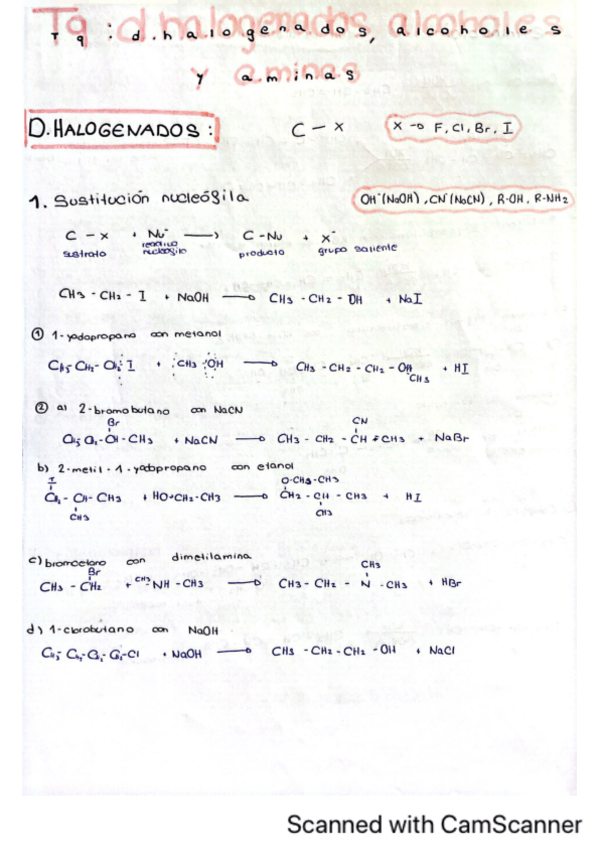 T9: d.halogenados, alcoholes
y aminas
D.HALOGENADOS:
C - X
X → F, Cl, Br, I
1. Sustitución nucleófila
OH⁻(NaOH), CN⁻(NaCN), R-OH, R-NH2
C - X + Nu⁻ → C-Nu + X⁻
sustrato reactivo nucleófilo producto grupo saliente
CH3 - CH2 - I + NaOH → CH3 - CH2 - OH + NaI
① 1-yodopropano con metanol
CH3 CH2- CH2 I + CH3 OH → CH3 - CH2 - CH2 - O + HI
CH3
② a) 2-bromobutano con NaCN
Br CN
CH3 CH2-CH-CH3 + NaCN → CH3 - CH2 - CH - CH3 + NaBr
b) 2-metil-1-yodopropano con etanol
I O-CH2-CH3
CH2 - CH - CH3 + HO-CH2-CH3 → CH2 - CH - CH3 + HI
CH3 CH3
c) bromoetano con dimetilamina
Br CH3
CH3 - CH2 + CH3 NH - CH3 → CH3 - CH2 - N - CH3 + HBr
d) 1-clorobutano con NaOH
CH3-CH2-CH2-CH2-Cl + NaOH → CH3 - CH2 - CH2 - OH + NaCl
Scanned with CamScanner